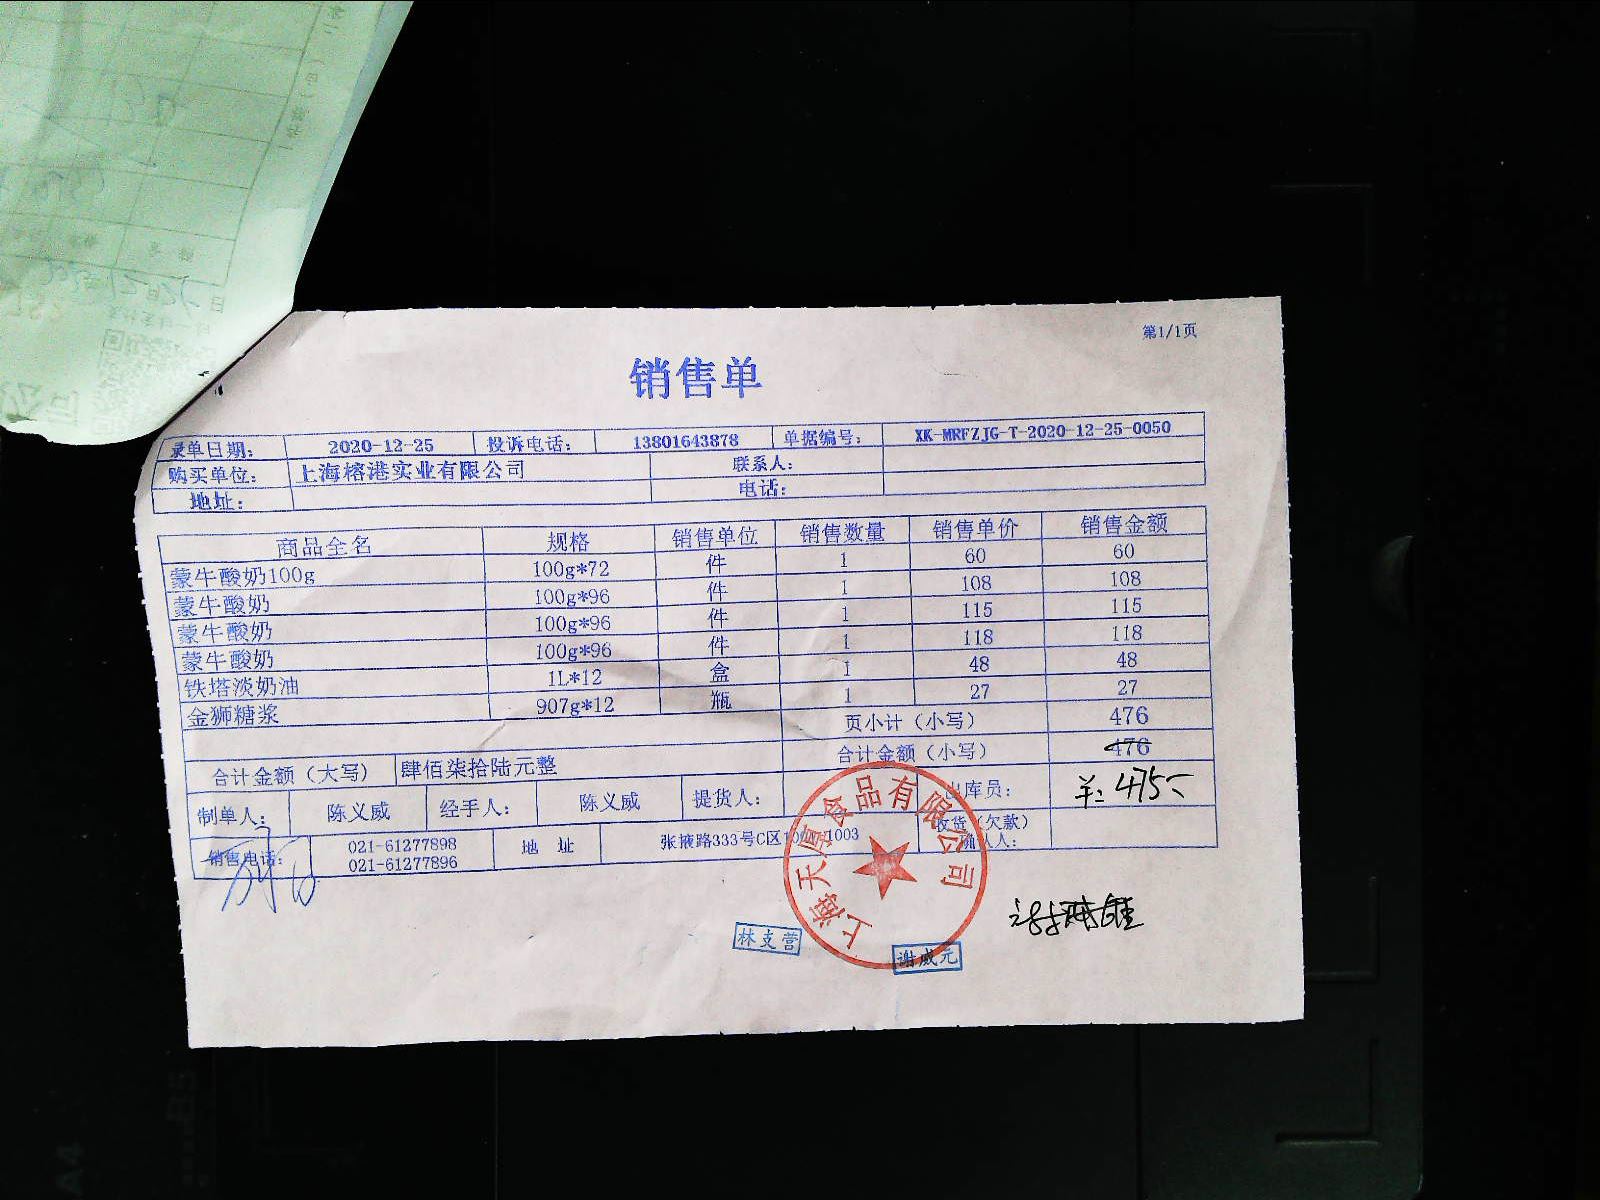 第1/1页
销售单
录单日期： 2020-12-25 投诉电话： 13801643878 单据编号： XK-MRFZJG-T-2020-12-25-0050
购买单位： 上海榕港实业有限公司 联系人：
地址： 电话：
商品全名 规格 销售单位 销售数量 销售单价 销售金额
蒙牛酸奶100g 100g*72 件 1 60 60
蒙牛酸奶 100g*96 件 1 108 108
蒙牛酸奶 100g*96 件 1 115 115
蒙牛酸奶 100g*96 件 1 118 118
铁塔淡奶油 1L*12 盒 1 48 48
金狮糖浆 907g*12 瓶 1 27 27
页小计（小写） 476
合计金额（大写） 肆佰柒拾陆元整 合计金额（小写） 476
制单人： 陈义威 经手人： 陈义威 提货人： 出库员： 475
销售电话： 021-61277898 地 址 张掖路333号C区 1003 收货（欠款）
021-61277896 确认人：
上海天厚食品有限公司
林支营
谢威元